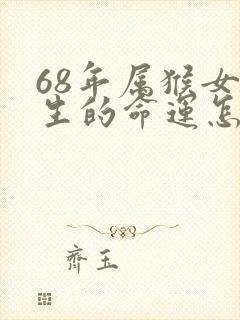 68年属猴女
生的命运怎
齊玉